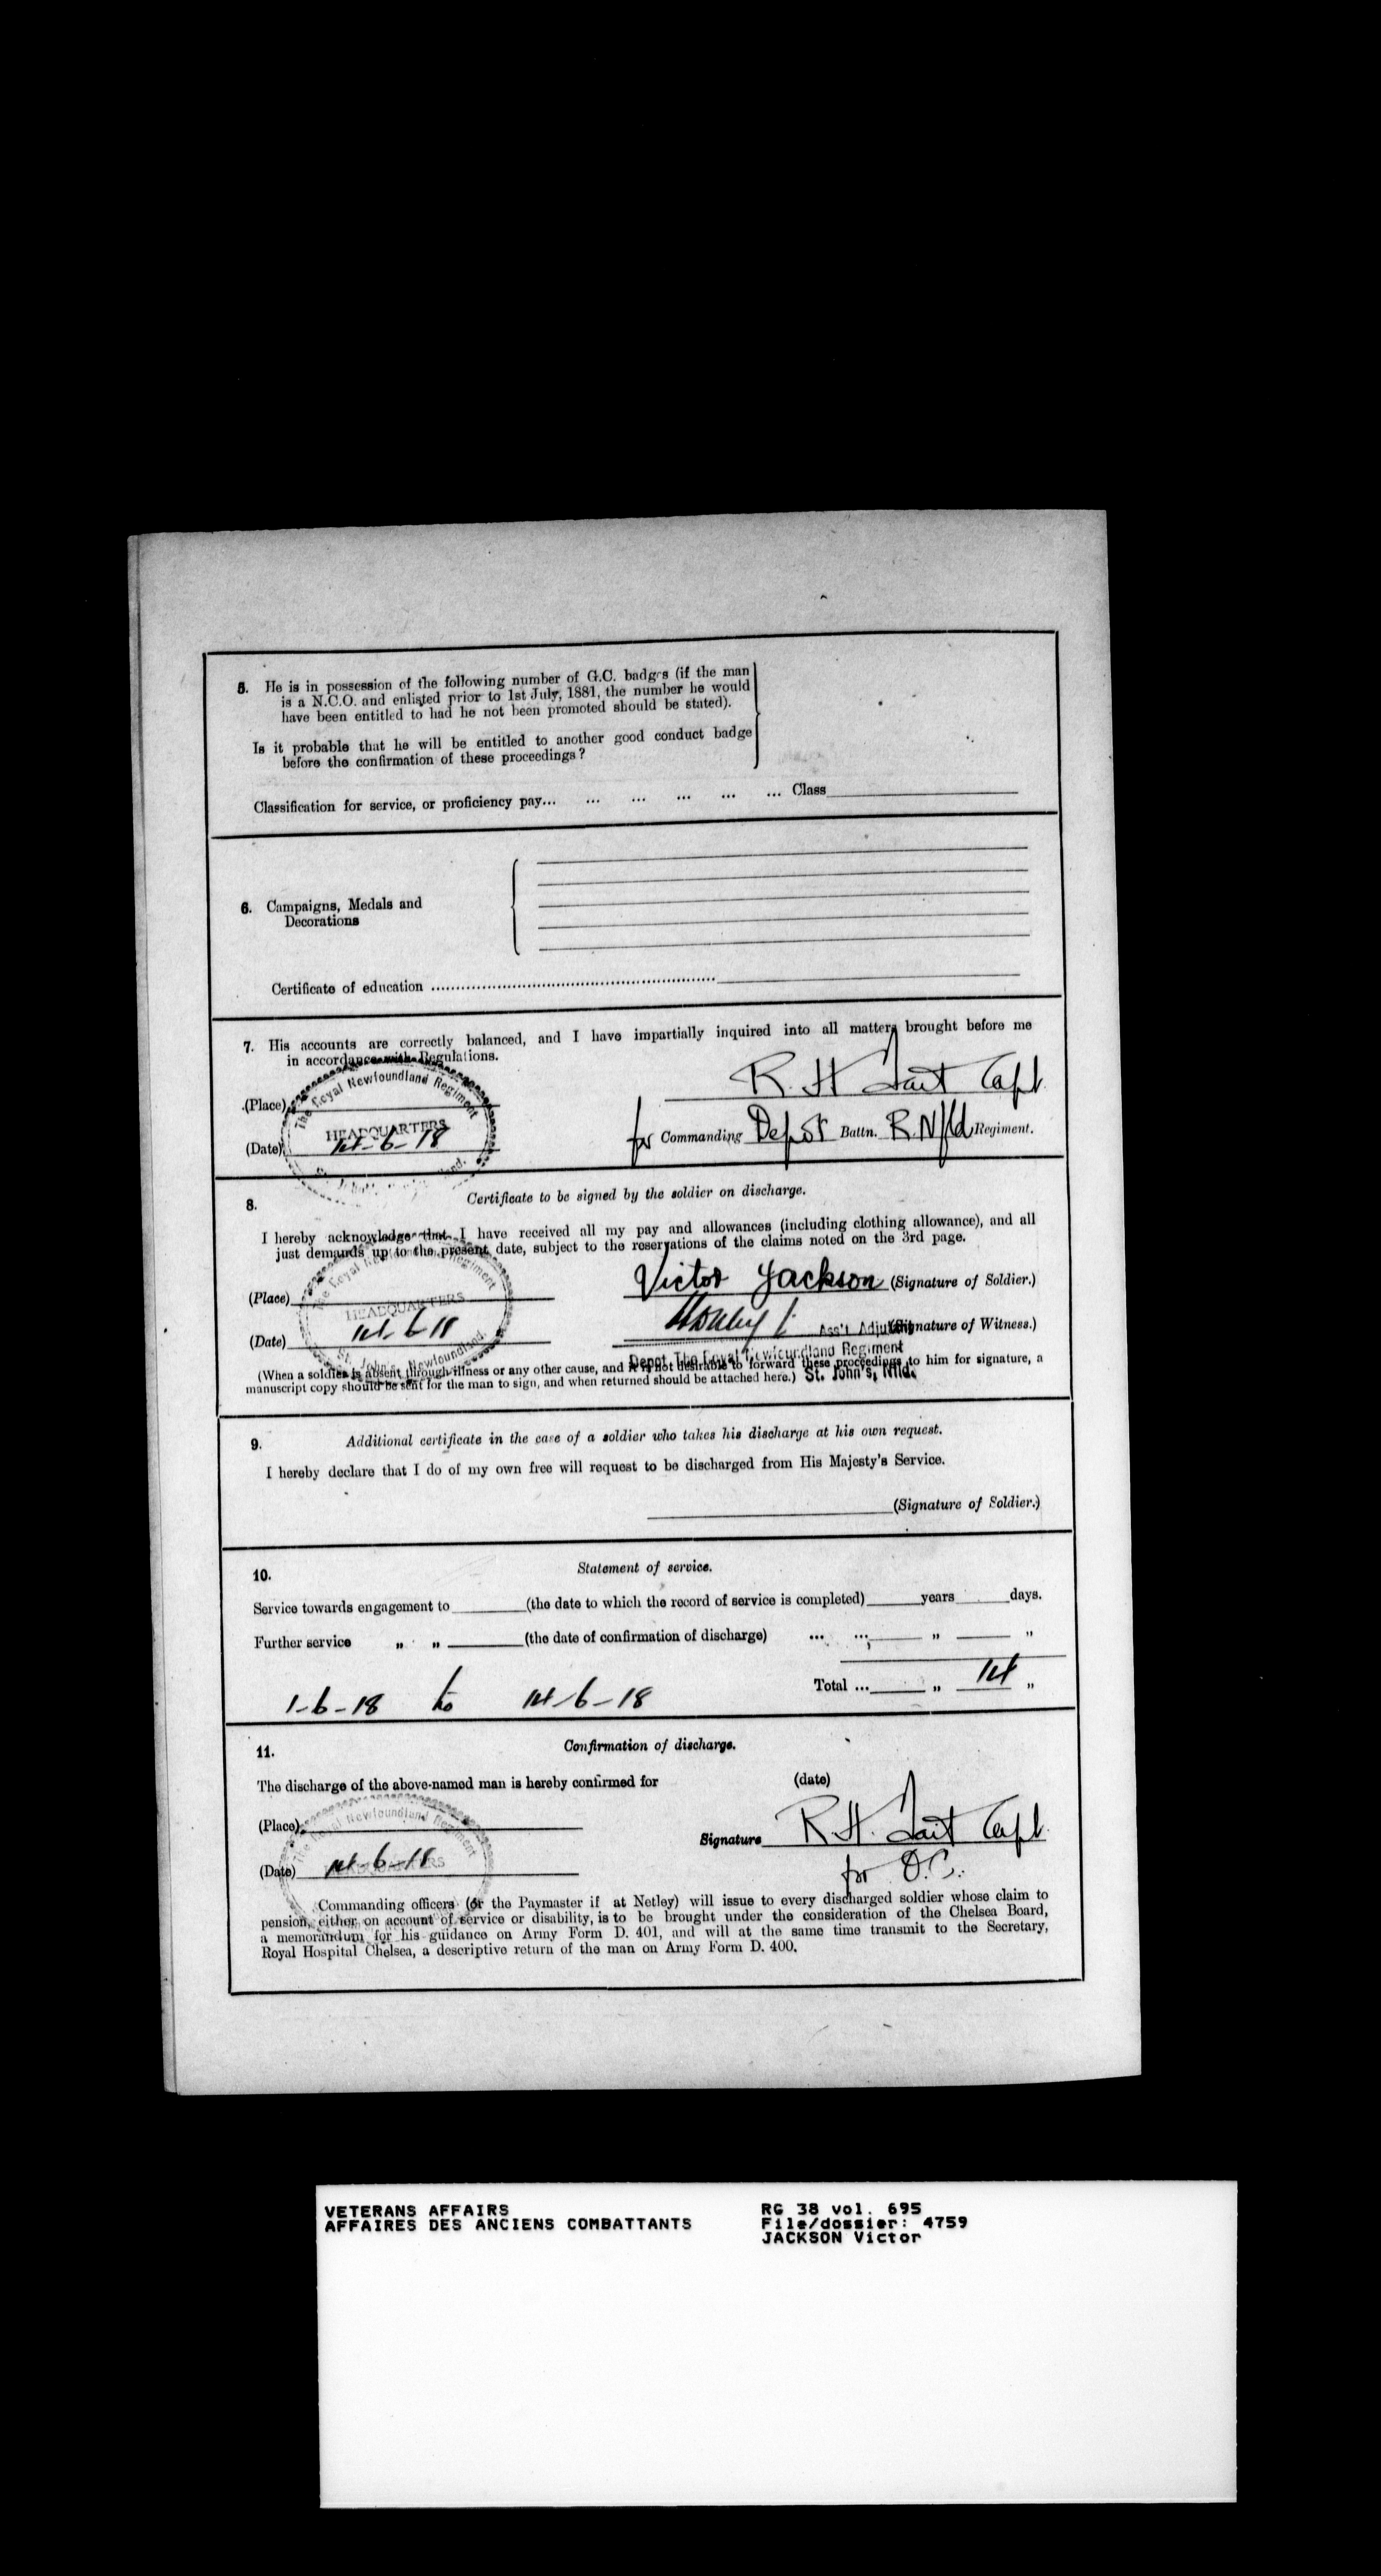 5. He is in possession of the following number of G.C. badges (if the man
is a N.C.O. and enlisted prior to 1st July, 1881, the number he would
have been entitled to had he not been promoted should be stated).
Is it probable that he will be entitled to another good conduct badge
before the confirmation of these proceedings?
Classification for service, or proficiency pay... ... ... ... ... ... Class
6. Campaigns, Medals and
Decorations
Certificate of education
7. His accounts are correctly balanced, and I have impartially inquired into all matters brought before me
in accordance with Regulations.
The Royal Newfoundland Regiment
R. H. Tait Capt.
(Place)
HEADQUARTERS
for Commanding Depot Battn. R. Nfld Regiment.
(Date) 14-6-18
8. Certificate to be signed by the soldier on discharge.
I hereby acknowledge that I have received all my pay and allowances (including clothing allowance), and all
just demands up to the present date, subject to the reservations of the claims noted on the 3rd page.
The Royal Newfoundland Regiment
Victor Jackson (Signature of Soldier.)
(Place)
HEADQUARTERS
Ass't Adjutant (Signature of Witness.)
(Date) 14-6-18
St. John's, Newfoundland.
Depot The Royal Newfoundland Regiment
St. John's, Nfld.
(When a soldier is absent through illness or any other cause, and it is not desirable to forward these proceedings to him for signature, a
manuscript copy should be sent for the man to sign, and when returned should be attached here.)
9. Additional certificate in the case of a soldier who takes his discharge at his own request.
I hereby declare that I do of my own free will request to be discharged from His Majesty's Service.
(Signature of Soldier.)
10. Statement of service.
Service towards engagement to (the date to which the record of service is completed) years days.
Further service „ „ (the date of confirmation of discharge) ... ... „ „
Total ... „ 14 „
1-6-18 to 14-6-18
11. Confirmation of discharge.
The discharge of the above-named man is hereby confirmed for (date)
The Royal Newfoundland Regiment
(Place)
Signature R. H. Tait Capt.
(Date) 14-6-18
HEADQUARTERS
for O.C.
Commanding officers (or the Paymaster if at Netley) will issue to every discharged soldier whose claim to
pension, either on account of service or disability, is to be brought under the consideration of the Chelsea Board,
a memorandum for his guidance on Army Form D. 401, and will at the same time transmit to the Secretary,
Royal Hospital Chelsea, a descriptive return of the man on Army Form D. 400.
VETERANS AFFAIRS
AFFAIRES DES ANCIENS COMBATTANTS
RG 38 vol. 695
File/dossier: 4759
JACKSON Victor